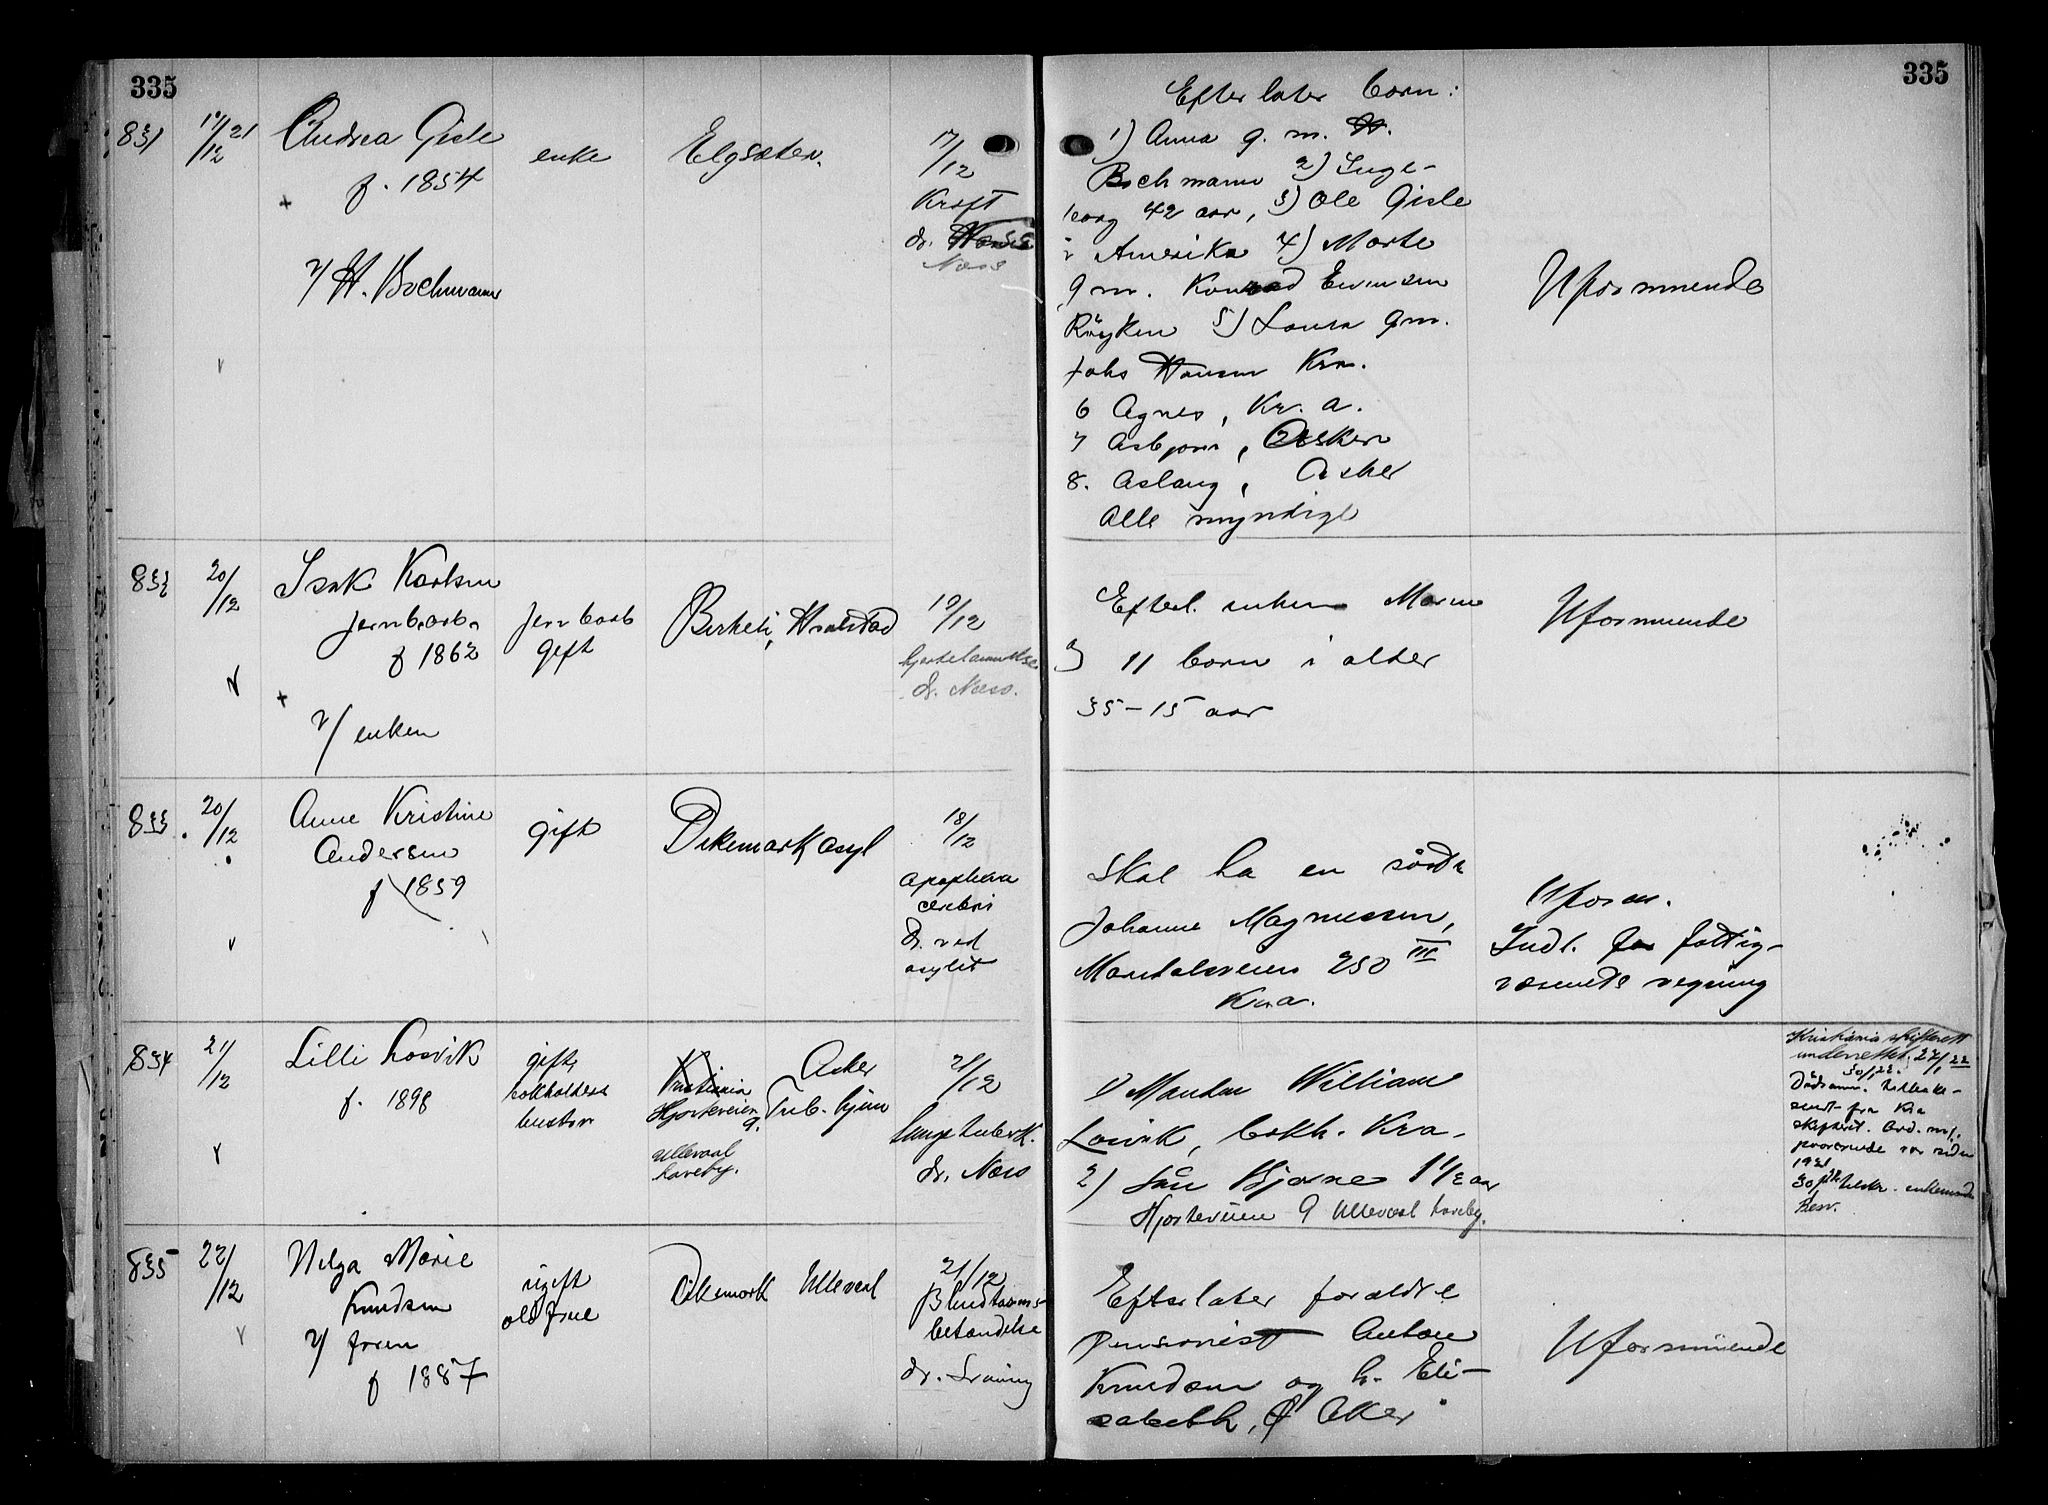 335
335
831
19/12 21
Andrea Gisle
f. 1854
v/ H. Bochmann
enke
Elgsæter.
17/12
Kræft
dr.
Næss
Efterlater børn:
1) Anna g. m.
Bochmann 2) Inge-
borg 42 aar, 3) Ole Gisle
i Amerika 4) Marte
g m. Konrad Evensen
Røyken 5) Laura g m.
Johs Hansen Kra.
6 Agnes, Kr. a.
7 Asbjørn, Asker
8. Aslaug, Asker
Alle myndige
Uformuende
832
20/12
Isak Karlsen
jernb.arb.
f 1862
v/ enken
jernbarb
gift
Birkeli, Hvalstad
19/12
hjertelammelse
dr. Næss.
Efterl. enken Maren
og 11 børn i alder
35 – 15 aar
Uformuende
833.
20/12
Anne Kristine
Andersen
f 1859
gift
Dikemark asyl
18/12
apoplexia
cerebri
dr. ved
asylet
Skal ha en søster
Johanne Magnussen,
Maridalsveien 250 III
Kra.
Uform.
Indl. for fattig-
væsenets regning
834
21/12
Lilli Losvik
f. 1898
gift,
bokholders
hustru
Kristiania
Hjorteveien
9.
Ullevaal
haveby.
Asker
Tub. hjem
21/12
Lungetuberk.
dr. Næss
1) Manden William
Losvik, bokh. Kra.
2) søn Bjarne 1 1/2 aar
Hjorteveien 9 Ullevaal haveby.
Kristiania skifterett
underrettet 27/1 22
30/1 22.
Dødsanm. tilbake-
sendt fra Kra
skifteret.
835
22/12
Helga Marie
Knudsen
v/ faren
f 1887
ugift
oldfrue
Dikemark
Ullevaal
21/12
Blindtarms-
betændelse
dr.
Efterlater forældre
Pensionist Anton
Knudsen og h. Eli-
sabeth, Ø Aker
Uformuende